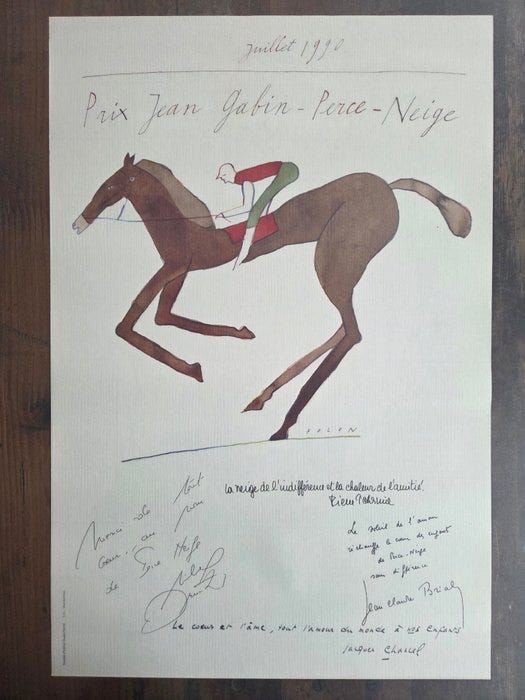 Juillet 1990
Prix Jean Gabin - Perce - Neige
FOLON
La neige de l'indifférence et la chaleur de l'amitié.
Pierre Tchernia
Merci de tout
coeur au nom
de
Le soleil de l'amour
réchauffe le coeur des enfants
de Perce-Neige
sans différence
Jean Claude Brialy
Le coeur et l'âme, tout l'amour du monde à nos enfants
Jacques Chancel